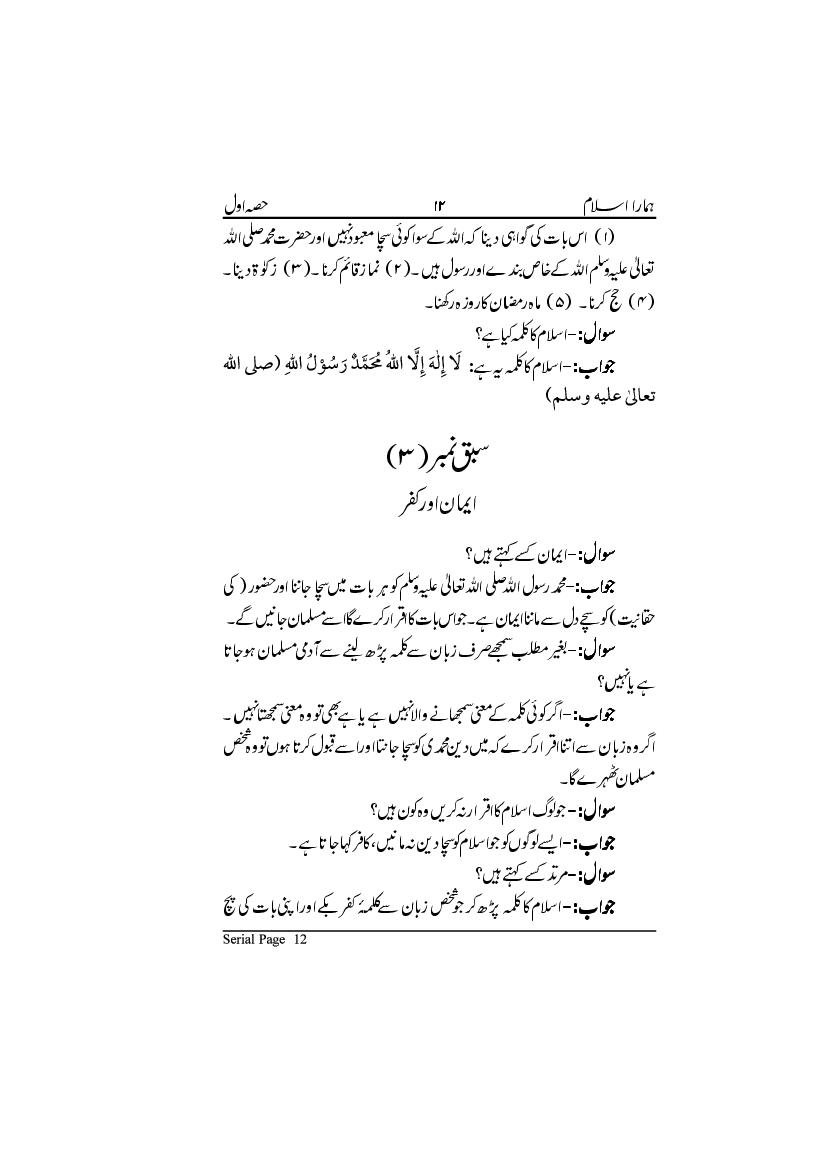 ہمارا اسلام ۱۲ حصہ اول
(۱) اس بات کی گواہی دینا کہ اللہ کے سوا کوئی سچا معبود نہیں اور حضرت محمد صلی اللہ
تعالیٰ علیہ وسلم اللہ کے خاص بندے اور رسول ہیں۔ (۲) نماز قائم کرنا۔ (۳) زکوٰۃ دینا۔
(۴) حج کرنا۔ (۵) ماہ رمضان کا روزہ رکھنا۔
سوال:- اسلام کا کلمہ کیا ہے؟
جواب:- اسلام کا کلمہ یہ ہے: لَا إِلٰهَ إِلَّا اللهُ مُحَمَّدٌ رَسُوْلُ اللهِ (صلى الله
تعالىٰ عليه وسلم)
سبق نمبر (۳)
ایمان اور کفر
سوال:- ایمان کسے کہتے ہیں؟
جواب:- محمد رسول اللہ صلی اللہ تعالیٰ علیہ وسلم کو ہر بات میں سچا جاننا اور حضور (کی
حقانیت) کو سچے دل سے ماننا ایمان ہے۔ جو اس بات کا اقرار کرے گا اسے مسلمان جانیں گے۔
سوال:- بغیر مطلب سمجھے صرف زبان سے کلمہ پڑھ لینے سے آدمی مسلمان ہو جاتا
ہے یا نہیں؟
جواب:- اگر کوئی کلمہ کے معنی سمجھانے والا نہیں ہے یا ہے بھی تو وہ معنی سمجھتا نہیں۔
اگر وہ زبان سے اتنا اقرار کرے کہ میں دین محمدی کو سچا جانتا اور اسے قبول کرتا ہوں تو وہ شخص
مسلمان ٹھہرے گا۔
سوال:- جو لوگ اسلام کا اقرار نہ کریں وہ کون ہیں؟
جواب:- ایسے لوگوں کو جو اسلام کو سچا دین نہ مانیں، کافر کہا جاتا ہے۔
سوال:- مرتد کسے کہتے ہیں؟
جواب:- اسلام کا کلمہ پڑھ کر جو شخص زبان سے کلمۂ کفر بکے اور اپنی بات کی پچ
Serial Page 12